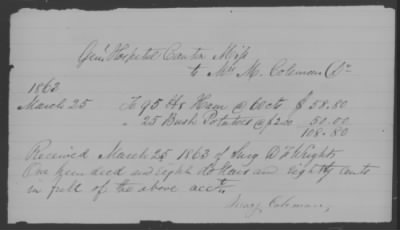 Genl Hospital Canton Miss
to Mrs M. Coleman Dr
1863
March 25 To 98 lbs Ham @ 60cts $58.80
" 25 Bush Potatoes @ $2.00 50.00
108.80
Received March 25 1863 of Surg D F Wright
One hundred and eight dollars and eighty cents
in full of the above acct.
Mary Coleman